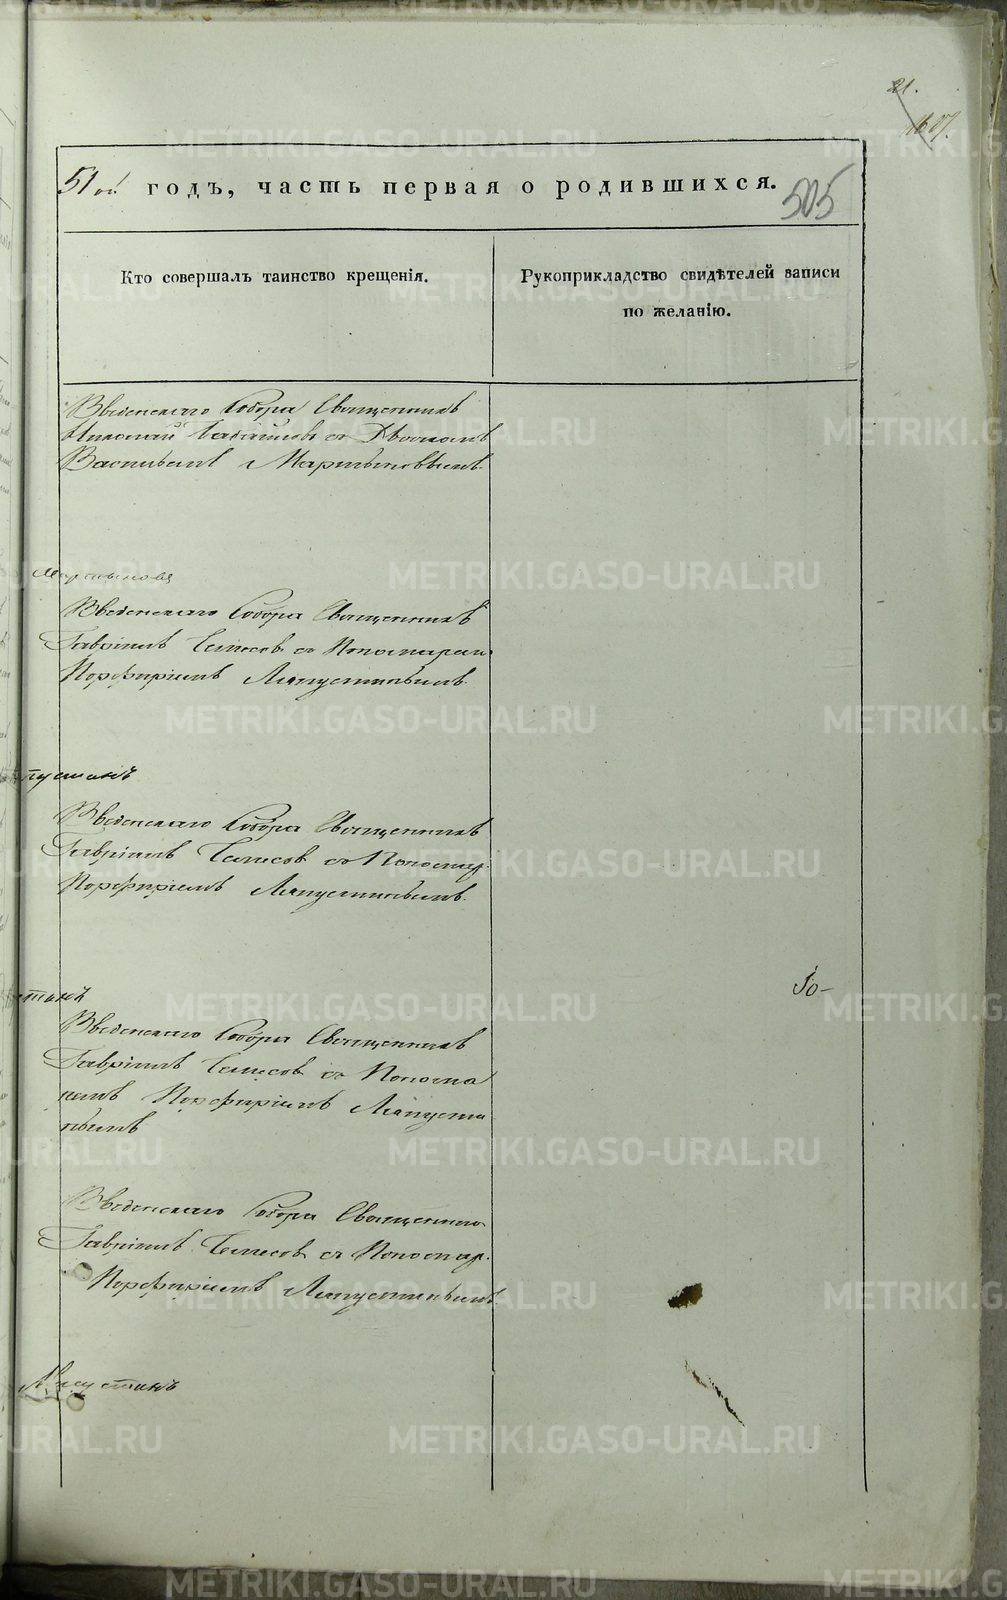 21.
1607.
51ой годъ, часть первая о родившихся.
505
Кто совершалъ таинство крещенія.
Рукоприкладство свидѣтелей записи
по желанію.
Введенскаго Собора Священникъ
Николай съ Дьякономъ
Васильемъ Мартыновымъ.
Мартыновъ
Введенскаго Собора Священникъ
Гавріилъ съ Пономарем
Порфиріемъ Ляпустинымъ.
пустинъ
Введенскаго Собора Священникъ
Гавріилъ съ Пономар.
Порфиріемъ Ляпустинымъ.
стинъ
10-
Введенскаго Собора Священникъ
Гавріилъ съ Понома
ремъ Порфиріемъ Ляпусти
нымъ
Введенскаго Собора Священник
Гавріилъ съ Пономар.
Порфиріемъ Ляпустинымъ
Ляпустинъ
METRIKI.GASO-URAL.RU